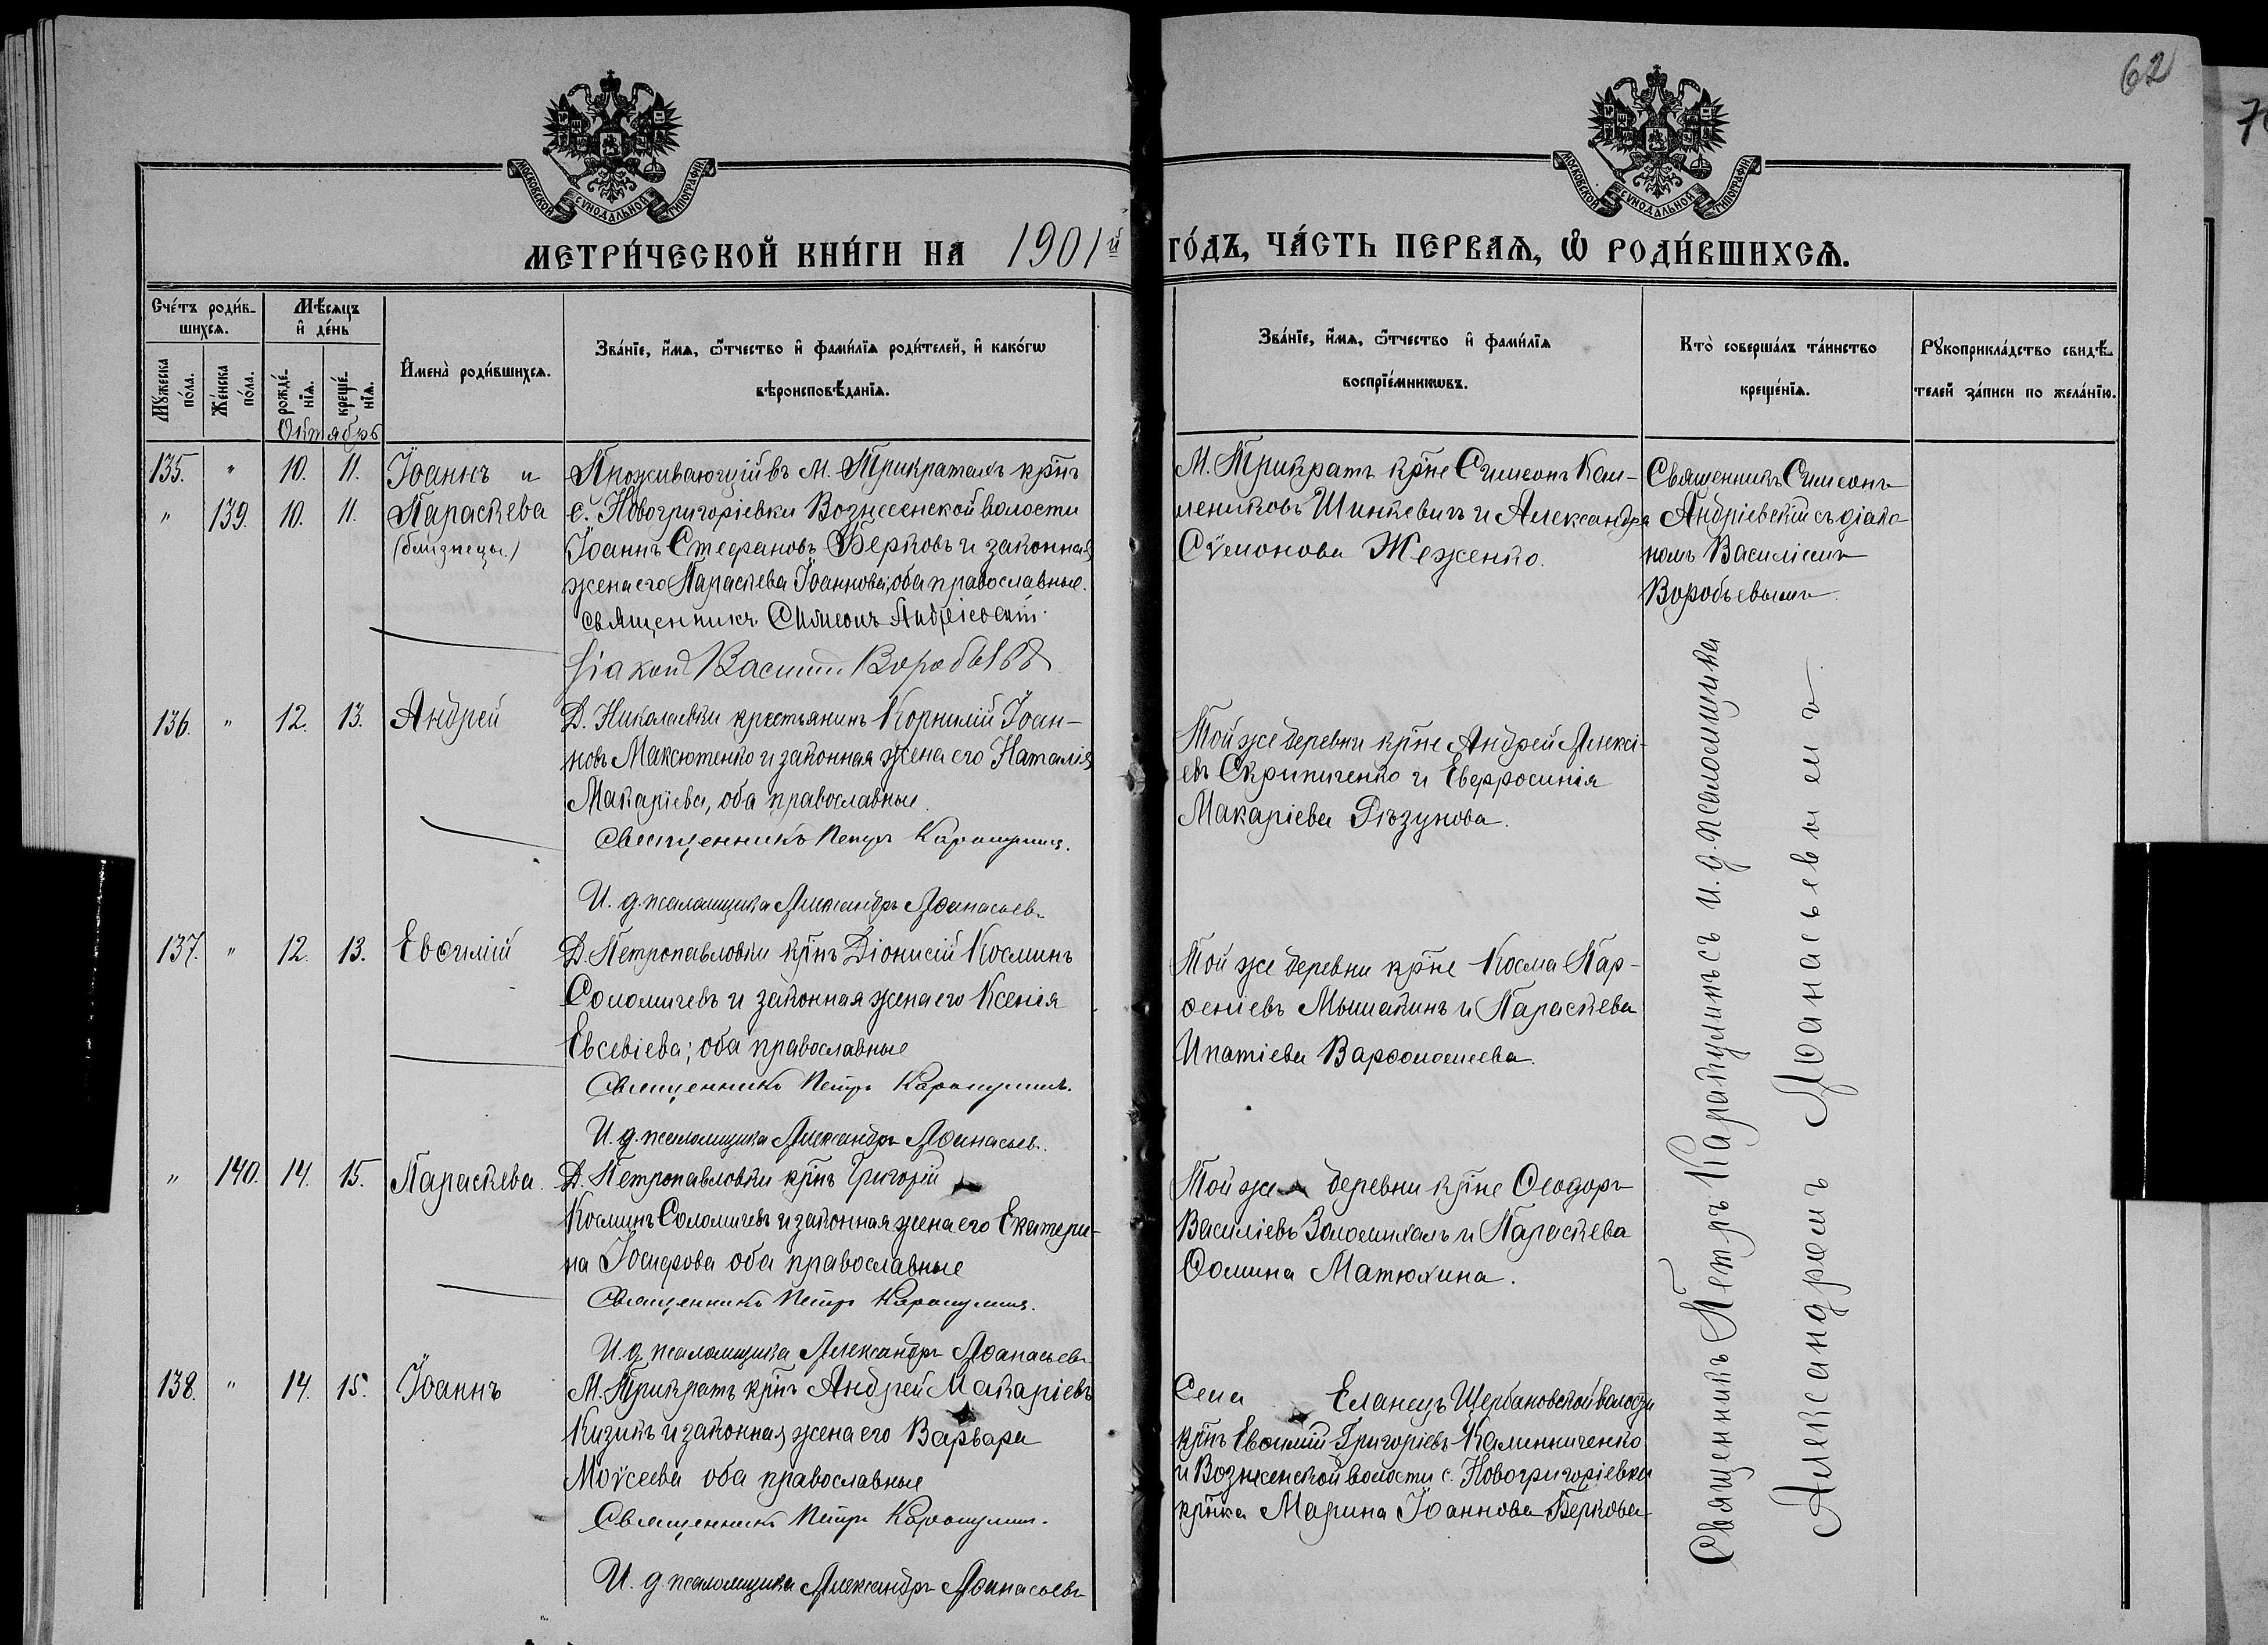 62
МОСКОВСКОЙ СѴНОДАЛЬНОЙ ТИПОГРАФІИ
МОСКОВСКОЙ СѴНОДАЛЬНОЙ ТИПОГРАФІИ
МЕТРИ́ЧЕСКОЙ КНИ́ГИ НА 1901й ГО́ДЪ, ЧА́СТЬ ПЕРВАѦ, Ѡ РОДИ́ВШИХСѦ.
Сче́тъ роди́в-
шихсѧ.
Мꙋжеска по́ла.
Же́нска по́ла.
Мѣсяцъ
и де́нь
рожде́-
нїѧ.
креще́-
нїѧ.
Октябрь
И҆мена̀ роди́вшихсѧ.
Зва́нїе, и҆́мѧ, ѻ҆́тчество и҆ фами́лїѧ роди́телей, и҆ како́гѡ
вѣроисповѣ́данїѧ.
Зва́нїе, и҆́мѧ, ѻ҆́тчество и҆ фами́лїѧ
воспрїе́мникѡвъ.
Кто̀ соверша́лъ та́инство
креще́нїѧ.
Рꙋкоприкла́дство свидѣ́-
телей за́писи по жела́нїю.
135. " 10. 11. Іоаннъ и
" 139. 10. 11. Параскева
(близнецы.)
Проживающій въ м. Трикратахъ крнъ
с. Новогригоріевки Вознесенской волости
Іоаннъ Стефановъ Берковъ и законная
жена его Параскева Іоаннова, оба православные.
Священникъ Симеонъ Андріевскій
Діаконъ Василій Воробьевъ
М. Трикратъ крне Симеонъ Кли-
мениковъ Шинкевичъ и Александра
Сѵмонова Жеженко.
Священникъ Симеонъ
Андріевскій съ діако-
номъ Василіемъ
Воробьевымъ
136. " 12. 13. Андрей
Д. Николаевки крестьянинъ Корнилій Іоан-
новъ Максютенко и законная жена его Наталія
Макаріева, оба православные.
Священникъ Петръ Каракулинъ.
И. д. псаломщика Александръ Аѳанасьевъ
Той же деревни крне Андрей Алексі-
евъ Скрипиченко и Евфросинія
Макаріева Рѣзунова.
137. " 12. 13. Евѳимій
Д. Петропавловки крнъ Діонисій Косминъ
Соломичевъ и законная жена его Ксенія
Евсевіева; оба православные
Священникъ Петръ Каракулинъ.
И. д. псаломщика Александръ Аѳанасьев.
Той же деревни крне Косма Пар-
ѳеніевъ Мышакинъ и Параскева
Ипатіева Варѳоломеева.
" 140. 14. 15. Параскева.
Д. Петропавловки крнъ Григорій
Косминъ Соломичевъ и законная жена его Екатери-
на Іосифова оба православные
Священникъ Петръ Каракулинъ.
И. д. псаломщика Александръ Аѳанасьевъ
Той же деревни крне Ѳеодоръ
Василіевъ и Параскева
Ѳомина Матюхина.
138. " 14. 15. Іоаннъ
М. Трикратъ крнъ Андрей Макаріевъ
Кизикъ и законная жена его Варвара
Моѵсеева оба православные
Священникъ Петръ Каракулинъ.
И. д. псаломщика Александръ Аѳанасьевъ
Села Еланецъ Щербановской волости
крнъ Евѳимій Григоріевъ Калинниченко
и Вознесенской волости с. Новогригоріевки
крнка Марина Іоаннова Беркова
Священникъ Петръ Каракулинъ съ и. д. псаломщика
Александромъ Аѳанасьевымъ